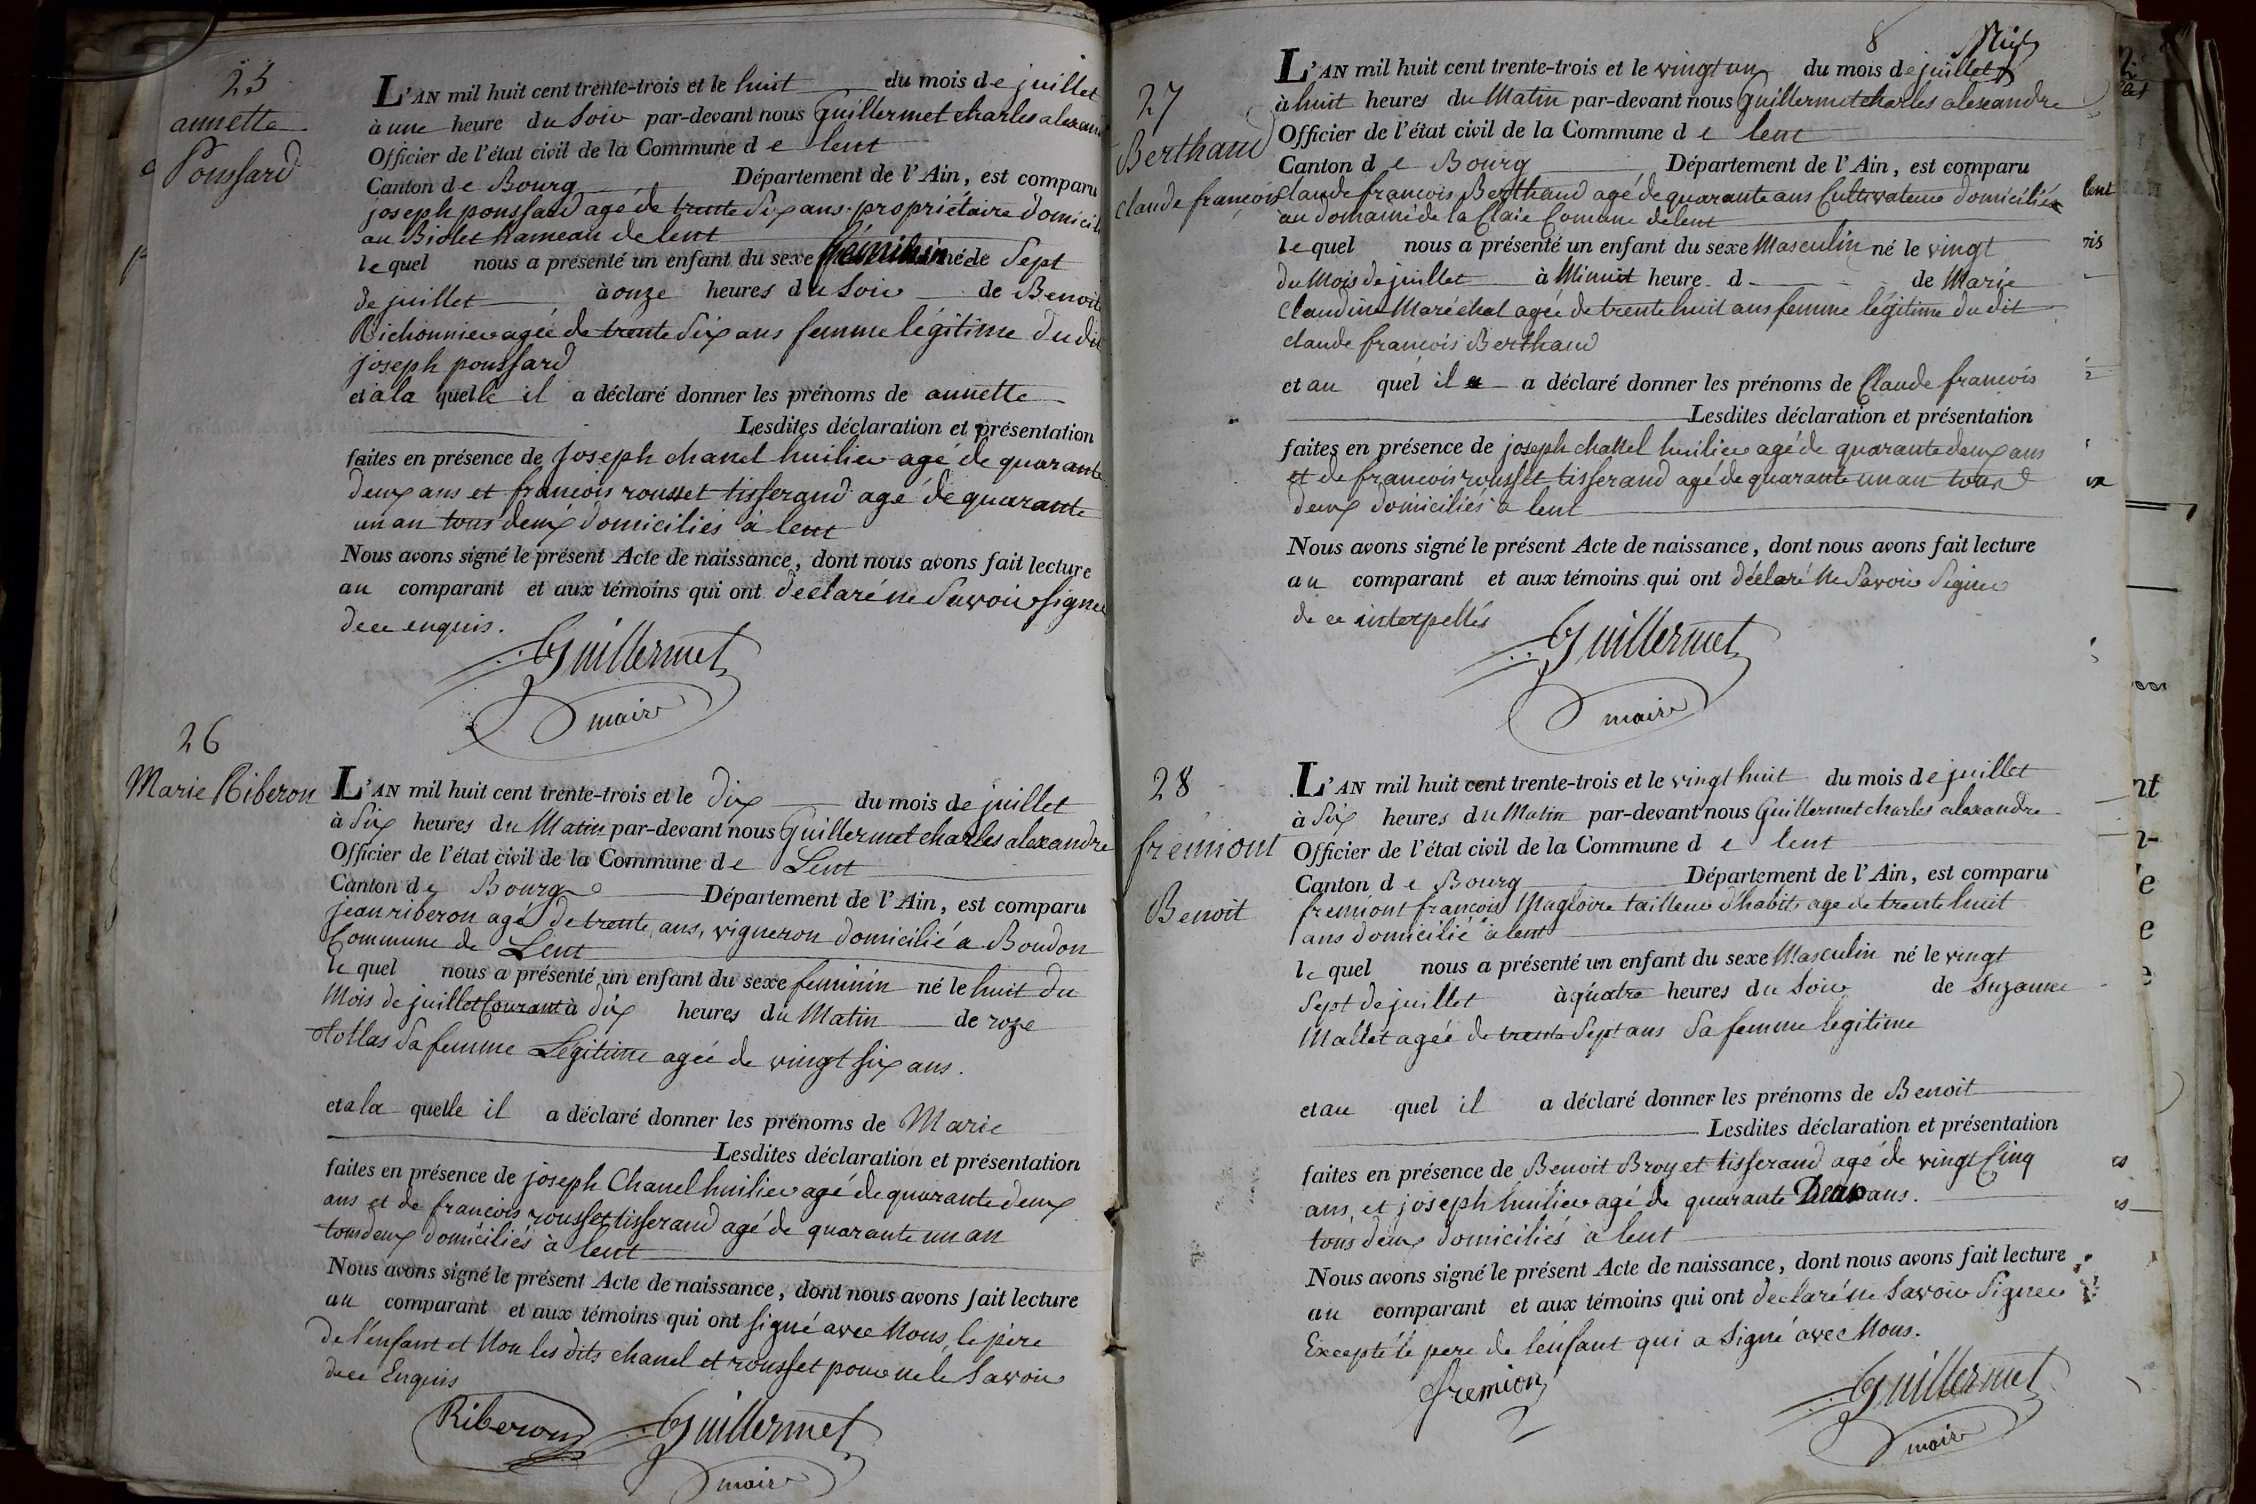 25
annette
Poussard
L'AN mil huit cent trente-trois et le huit du mois de juillet
à une heure du Soir par-devant nous Guillermet charles alexand
Officier de l'état civil de la Commune de lent
Canton de Bourg Département de l'Ain, est comparu
joseph poussard agé de trente Six ans propriétaire domicili
au Biolet hameau de lent
lequel nous a présenté un enfant du sexe féminin né le Sept
de juillet à onze heures du Soir de Benoite
Richonnier agée de trente Six ans femme légitime du dit
joseph poussard
et à la quelle il a déclaré donner les prénoms de annette
Lesdites déclaration et présentation
faites en présence de Joseph chanel huilier agé de quarante
deux ans et francois rousset tisserand agé de quarante
un an tous deux domiciliés à lent
Nous avons signé le présent Acte de naissance, dont nous avons fait lecture
au comparant et aux témoins qui ont déclaré ne Savoir signer
de ce enquis.
Guillermet
maire
26
Marie Riberon
L'AN mil huit cent trente-trois et le dix du mois de juillet
à Six heures du Matin par-devant nous Guillermet charles alexandre
Officier de l'état civil de la Commune de Lent
Canton de Bourg Département de l'Ain, est comparu
jean riberon agé de trente ans, vigneron domicilié à Boudon
Commune de Lent
le quel nous a présenté un enfant du sexe feminin né le huit du
Mois de juillet Courant à dix heures du Matin de roze
Hollas Sa femme Légitime agée de vingt Six ans.
et a la quelle il a déclaré donner les prénoms de Marie
Lesdites déclaration et présentation
faites en présence de joseph Chanel huilier agé de quarante deux
ans et de francois rousset tisserand agé de quarante un an
tous deux domiciliés à lent
Nous avons signé le présent Acte de naissance, dont nous avons fait lecture
au comparant et aux témoins qui ont signé avec Nous, le père
de l'enfant et Non les dits chanel et rousset pour ne le Savoir
de ce Enquis
Riberon Guillermet
maire
8
27
Berthaud
claude françois
L'AN mil huit cent trente-trois et le vingt un du mois de juillet
à huit heures du Matin par-devant nous Guillermet charles alexandre
Officier de l'état civil de la Commune de lent
Canton de Bourg Département de l'Ain, est comparu
Claude francois Berthaud agé de quarante ans Cultivateur domicilié
au domaine de la Claie Comune de lent
le quel nous a présenté un enfant du sexe Masculin né le vingt
du Mois de juillet à Minuit heure d de Marie
Claudine Maréchal agée de trente huit ans femme légitime du dit
claude francois Berthaud
et au quel il a déclaré donner les prénoms de Claude francois
Lesdites déclaration et présentation
faites en présence de joseph chanel huilier agé de quarante deux ans
et de francois rousset tisserand agé de quarante un an tous
deux domiciliés à lent
Nous avons signé le présent Acte de naissance, dont nous avons fait lecture
au comparant et aux témoins qui ont déclaré Ne Savoir Signer
de ce interpellés
Guillermet
maire
28
fremiont
Benoit
L'AN mil huit cent trente-trois et le vingt huit du mois de juillet
à Six heures du Matin par-devant nous Guillermet charles alexandre
Officier de l'état civil de la Commune de lent
Canton de Bourg Département de l'Ain, est comparu
fremiont françois Magloire tailleur d'habits age de trente huit
ans domicilié à lent
le quel nous a présenté un enfant du sexe Masculin né le vingt
Sept de juillet à quatre heures du Soir de Suzanne
Mallet agée de trente Sept ans Sa femme legitime
et au quel il a déclaré donner les prénoms de Benoit
Lesdites déclaration et présentation
faites en présence de Benoit Broyet tisserand agé de vingt Cinq
ans, et joseph huilier agé de quarante Deux ans.
tous deux domiciliés à lent
Nous avons signé le présent Acte de naissance, dont nous avons fait lecture
au comparant et aux témoins qui ont declaré ne Savoir Signer
Excepté le pere de l'enfant qui a Signé avec Nous.
fremion Guillermet
maire